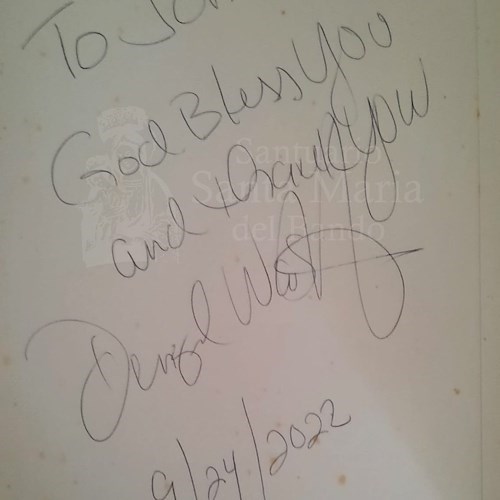 To
God Bless You
and thank you
Denzel Wash
9/24/2022
Santuario
Santa Maria
del Fondo